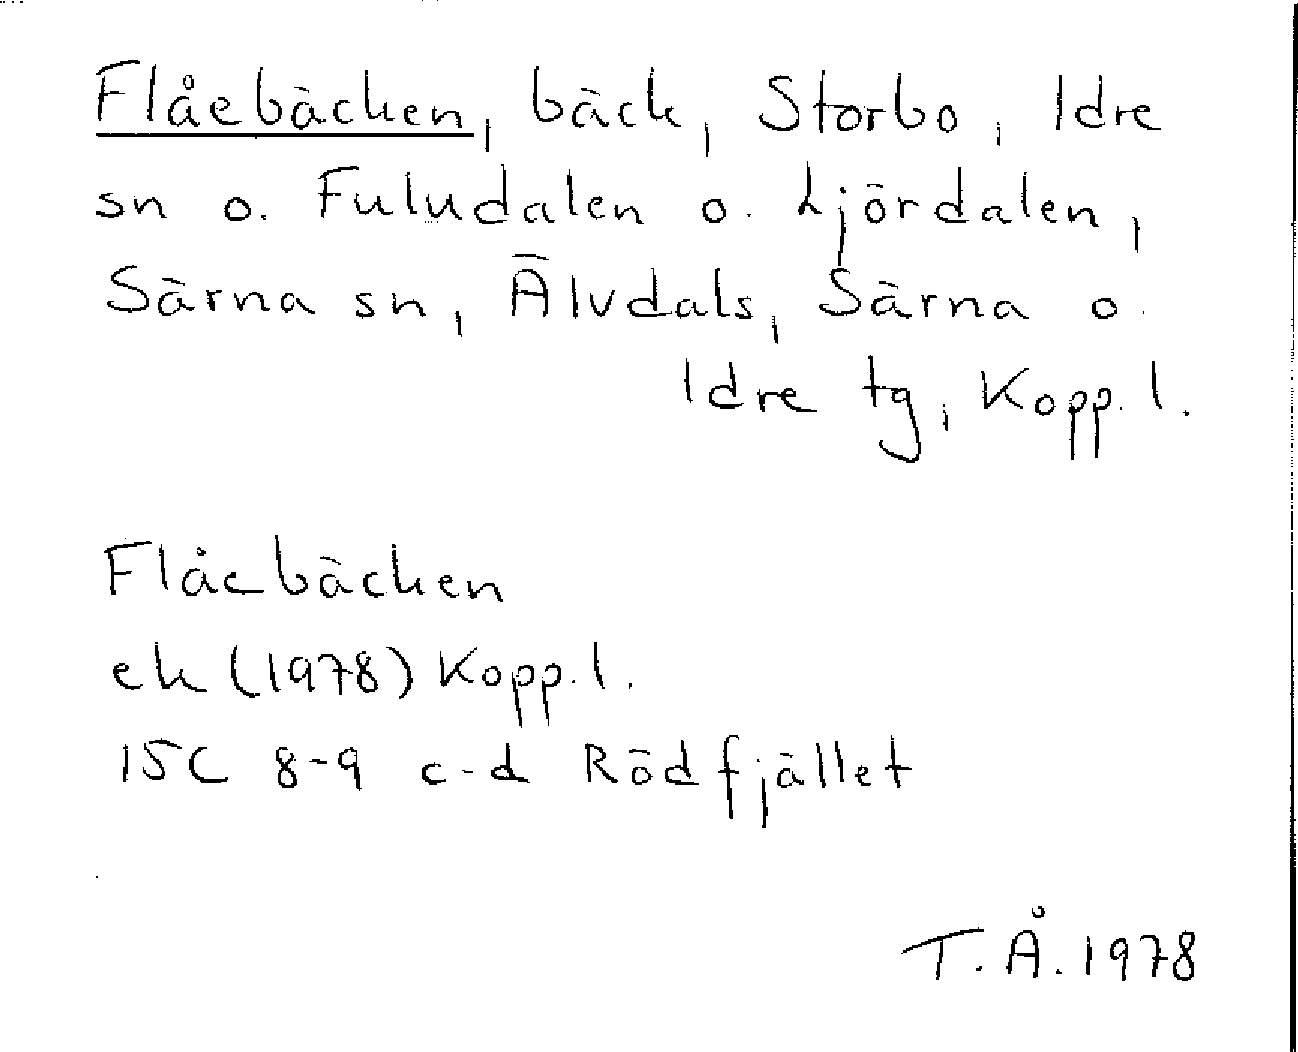 Flåebäcken, bäck, Storbo, Idre
sn o. Fuludalen o. Ljördalen,
Särna sn, Älvdals, Särna o.
Idre tg, Kopp. l.
Flåebäcken
ek (1978) Kopp. l.
15C 8-9 c-d Rödfjället
T. Å. 1978